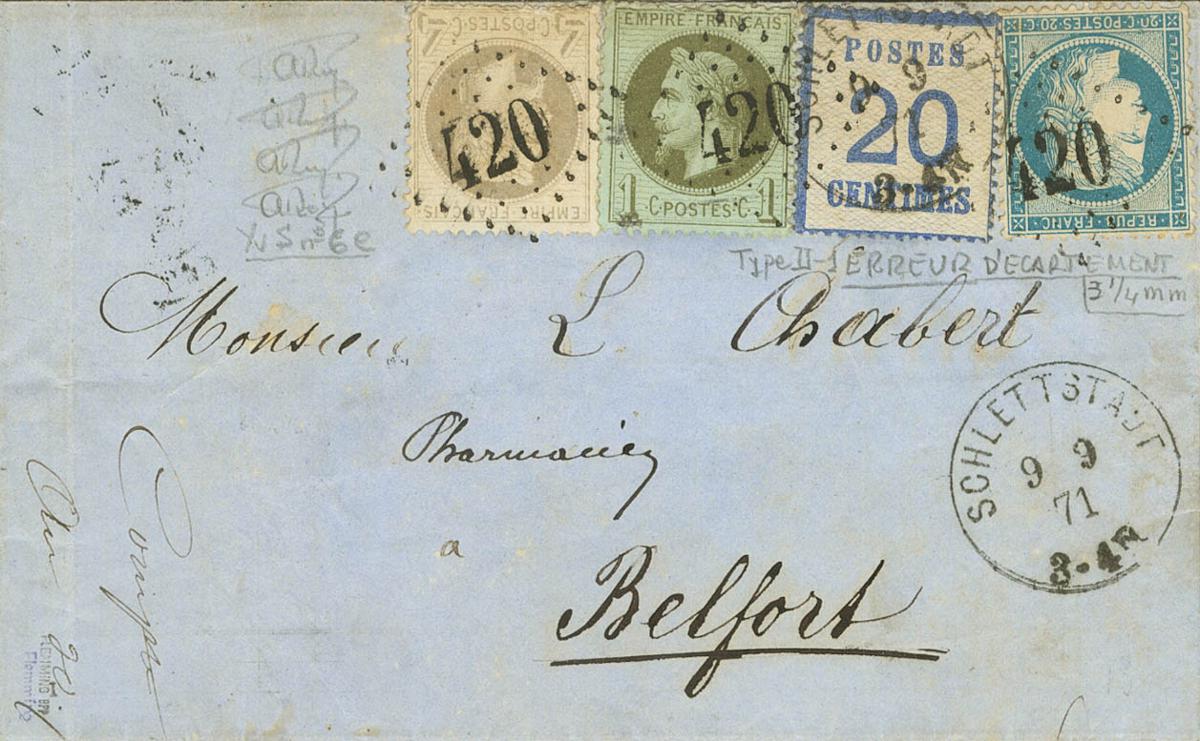 4 C·POSTES·C· 4
EMPIRE FRANÇAIS
420
EMPIRE FRANÇAIS
1 C·POSTES·C· 1
420
POSTES
20
CENTIMES
SCHLETTSTADT
9 9
71
3-4N
20·C·POSTES·20·C
REPUB·FRANC·
420
YvS nº 6e
Type II-1 ERREUR D'ECARTEMENT
3 1/4 mm
Monsieur L Chabert
Pharmacien
a
Belfort
SCHLETTSTADT
9 9
71
3-4N
FLEMMING BPP